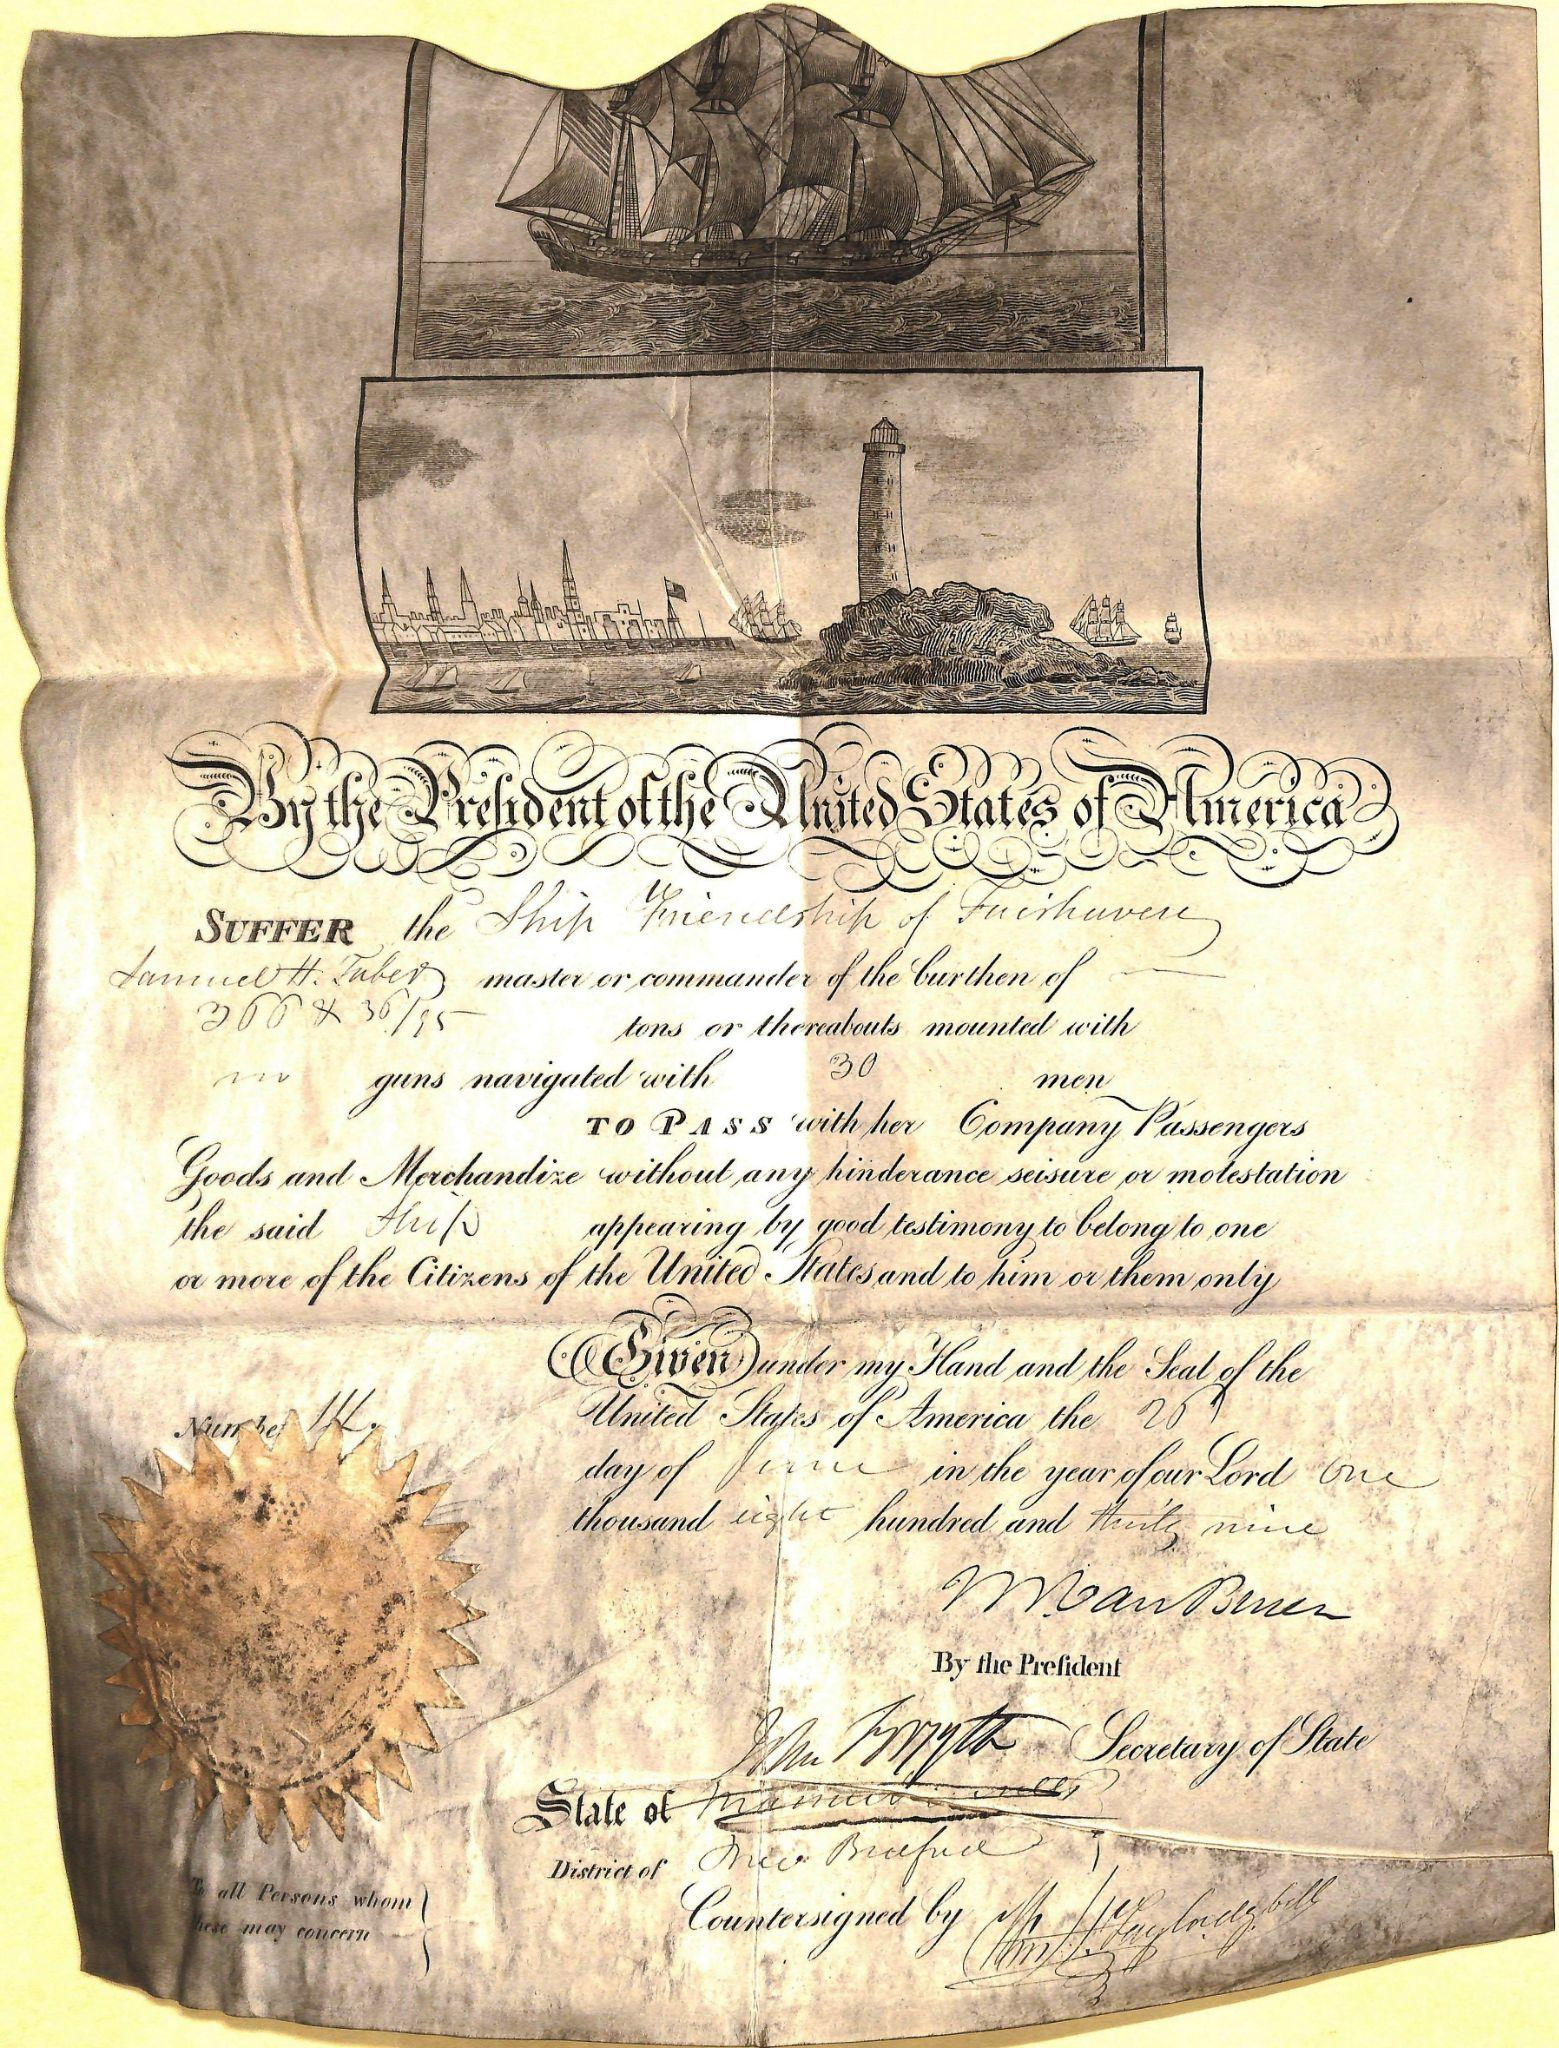 By the President of the United States of America
SUFFER the Ship Friendship of Fairhaven
Samuel H. Taber master or commander of the burthen of
366 & 36/95 tons or thereabouts mounted with
no guns navigated with 30 men
TO PASS with her Company Passengers
Goods and Merchandize without any hinderance seisure or molestation
the said Ship appearing by good testimony to belong to one
or more of the Citizens of the United States and to him or them only
Given under my Hand and the Seal of the
United States of America the 26
Number 14.
day of June in the year of our Lord One
thousand eight hundred and thirty nine
M Van Buren
By the President
John Forsyth Secretary of State
State of Massachusetts
District of New Bedford
To all Persons whom
these may concern
Countersigned by